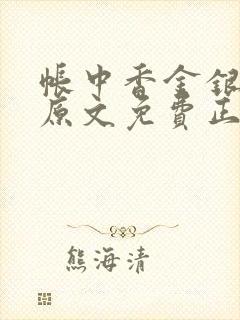 帳中香金銀
原文免費正
熊海清